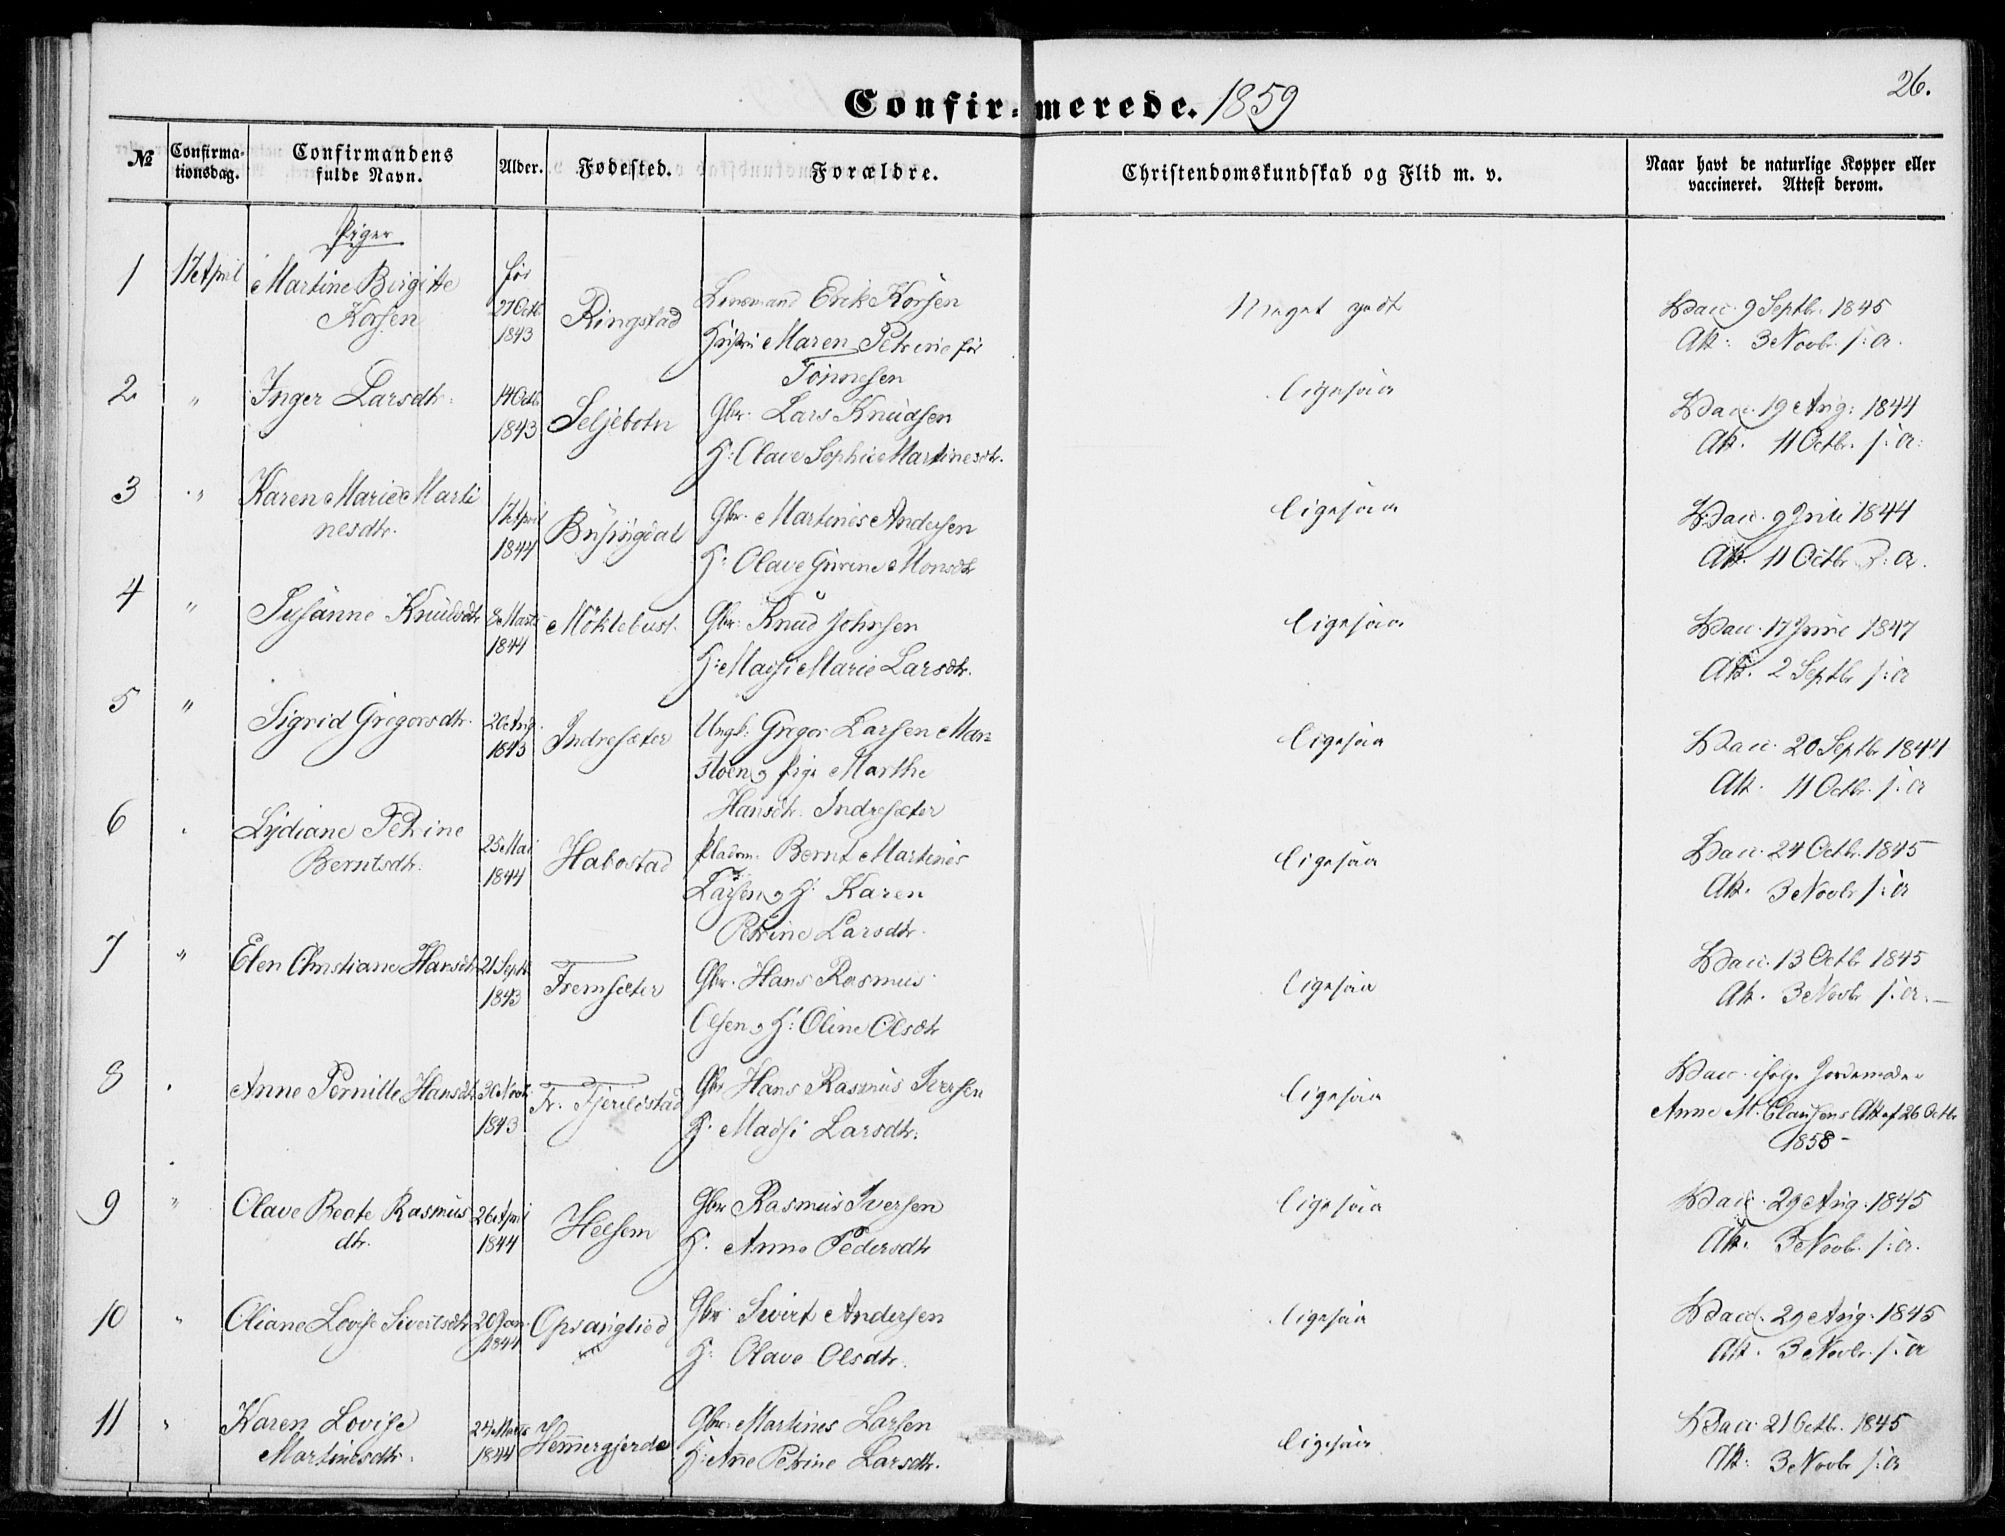 26.
Confirmerede. 1859
№
Confirmationsdag.
Confirmandens fulde Navn.
Alder.
Fødested.
Forældre.
Christendomskundskab og Flid m. v.
Naar havt de naturlige Kopper eller vaccineret. Attest derom.
Piger
1 17 April Martine Birgitte Korsen
før 27 Octb 1843
Ringstad
Lensmand Erik Korsen
Hustru Maren Petrine før
Tønnesen
Meget godt
Vacc. 9 Septbr. 1845
Att: 3 Novbr. s: a.
2 " Inger Larsdtr.
14 Octb 1843
Seljebotn
Gbr. Lars Knudsen
H: Olave Sophie Martinesdtr.
ligesaa
Vacc. 19 Aug: 1844
Att. 11 Octbr. s: a.
3 " Karen Marie Martinesdtr.
17 April 1844
Busingdal
Gbr. Martines Andersen
H: Olave Gurine Monsdtr
ligesaa
Vacc. 9 Juli 1844
Att. 11 Octbr. s: a.
4 " Susanne Knudsdtr
8 Marts 1844
Möklebust.
Gbr: Knud Johnsen
H: Madsi Marie Larsdtr.
ligesaa
Vacc. 17 Juni 1847
Att. 2 Septbr s: a
5 " Sigrid Gregorsdtr.
20 Aug. 1843
Indresæter
Ungk: Gregor Larsen Mar-
støen og Pige Marthe
Hansdtr. Indresæter
ligesaa
Vacc. 20 Septbr 1844
Att. 11 Octbr. s: a
6 " Lydiane Petrine Berntsdtr.
25 Mai 1844
Habostad
Pladsm. Bernt Martines
Larsen og H: Karen
Petrine Larsdtr.
ligesaa
Vacc. 24 Octbr. 1845
Att. 3 Novbr s: a
7 " Elen Christiane Hansdtr
21 Septb 1843
Fremsæter
Gbr. Hans Rasmus
Olsen og H: Oline Olsdtr
ligesaa
Vacc. 13 Octbr 1845
Att. 3 Novbr s: a.
8 " Anne Pernille Hansdtr
30 Novb 1843
Fr. Fjerildstad
Gbr Hans Rasmus Iversen
H. Madsi Larsdtr.
ligesaa
Vacc. ifølge Jordemoder
Anne M. Clausens Att af 26 Octbr
1858
9 " Olave Beate Rasmusdtr.
26 April 1844
Helsem
Gbr Rasmus Iversen
H. Anne Pedersdtr
ligesaa
Vacc. 29 Aug. 1845
Att. 3 Novbr. s: a.
10 " Oliane Lovise Sivertsdtr
20 Jan. 1844
Opsanglied
Gbr. Sivert Andersen
H. Olave Olsdtr.
ligesaa
Vacc. 29 Aug. 1845
Att. 3 Novbr. s: a
11 " Karen Lovise Martinesdtr.
24 Marts 1844
Hemmergjerde
Gbr. Martines Larsen
H: Ane Petrine Larsdtr.
ligesaa
Vacc. 21 Octbr. 1845
Att: 3 Novbr s: a